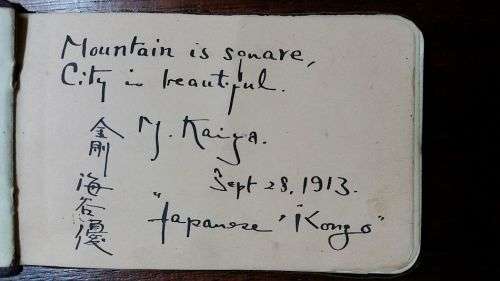 Mountain is square,
City is beautiful.
金剛
海谷優
M. Kaiya.
Sept 28, 1913.
"Japanese 'Kongo"